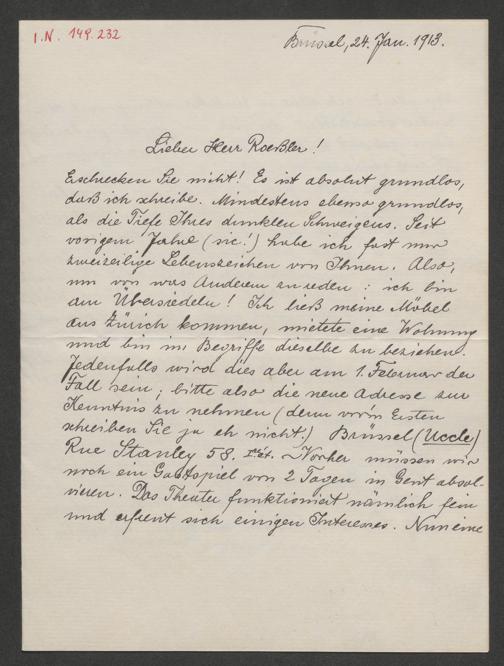 I.N. 149.232
Brüssel, 24. Jan. 1913.
Lieber Herr Roeßler!
Erschrecken Sie nicht! Es ist absolut grundlos,
daß ich schreibe. Mindestens ebenso grundlos,
als die Tiefe Ihres dunklen Schweigens. Seit
vorigem Jahre (sic!) habe ich fast nur
zweizeilige Lebenszeichen von Ihnen. Also,
um von was Anderem zu reden: ich bin
am Übersiedeln! Ich ließ meine Möbel
aus Zürich kommen, mietete eine Wohnung
und bin im Begriffe dieselbe zu beziehen.
Jedenfalls wird dies aber am 1. Februar der
Fall sein; bitte also die neue Adresse zur
Kenntnis zu nehmen (denn vor'm Ersten
schreiben Sie ja eh nicht.) Brüssel (Uccle)
Rue Stanley 58. Iér ét. Vorher müssen wir
noch ein Gastspiel von 2 Tagen in Gent absol-
vieren. Das Theater funktioniert nämlich fein
und erfreut sich einigen Interesses. Nun eine